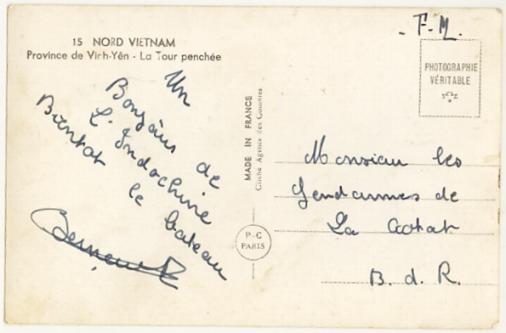 15 NORD VIETNAM
Province de Virh-Yên - La Tour penchée
Un
Bonjour de
L'Indochine
Bientot le bateau
- F.M.
PHOTOGRAPHIE
VÉRITABLE
MADE IN FRANCE
Cliché Agence des Colonies
P-C
PARIS
Monsieur les
Gendarmes de
La
B. d. R.